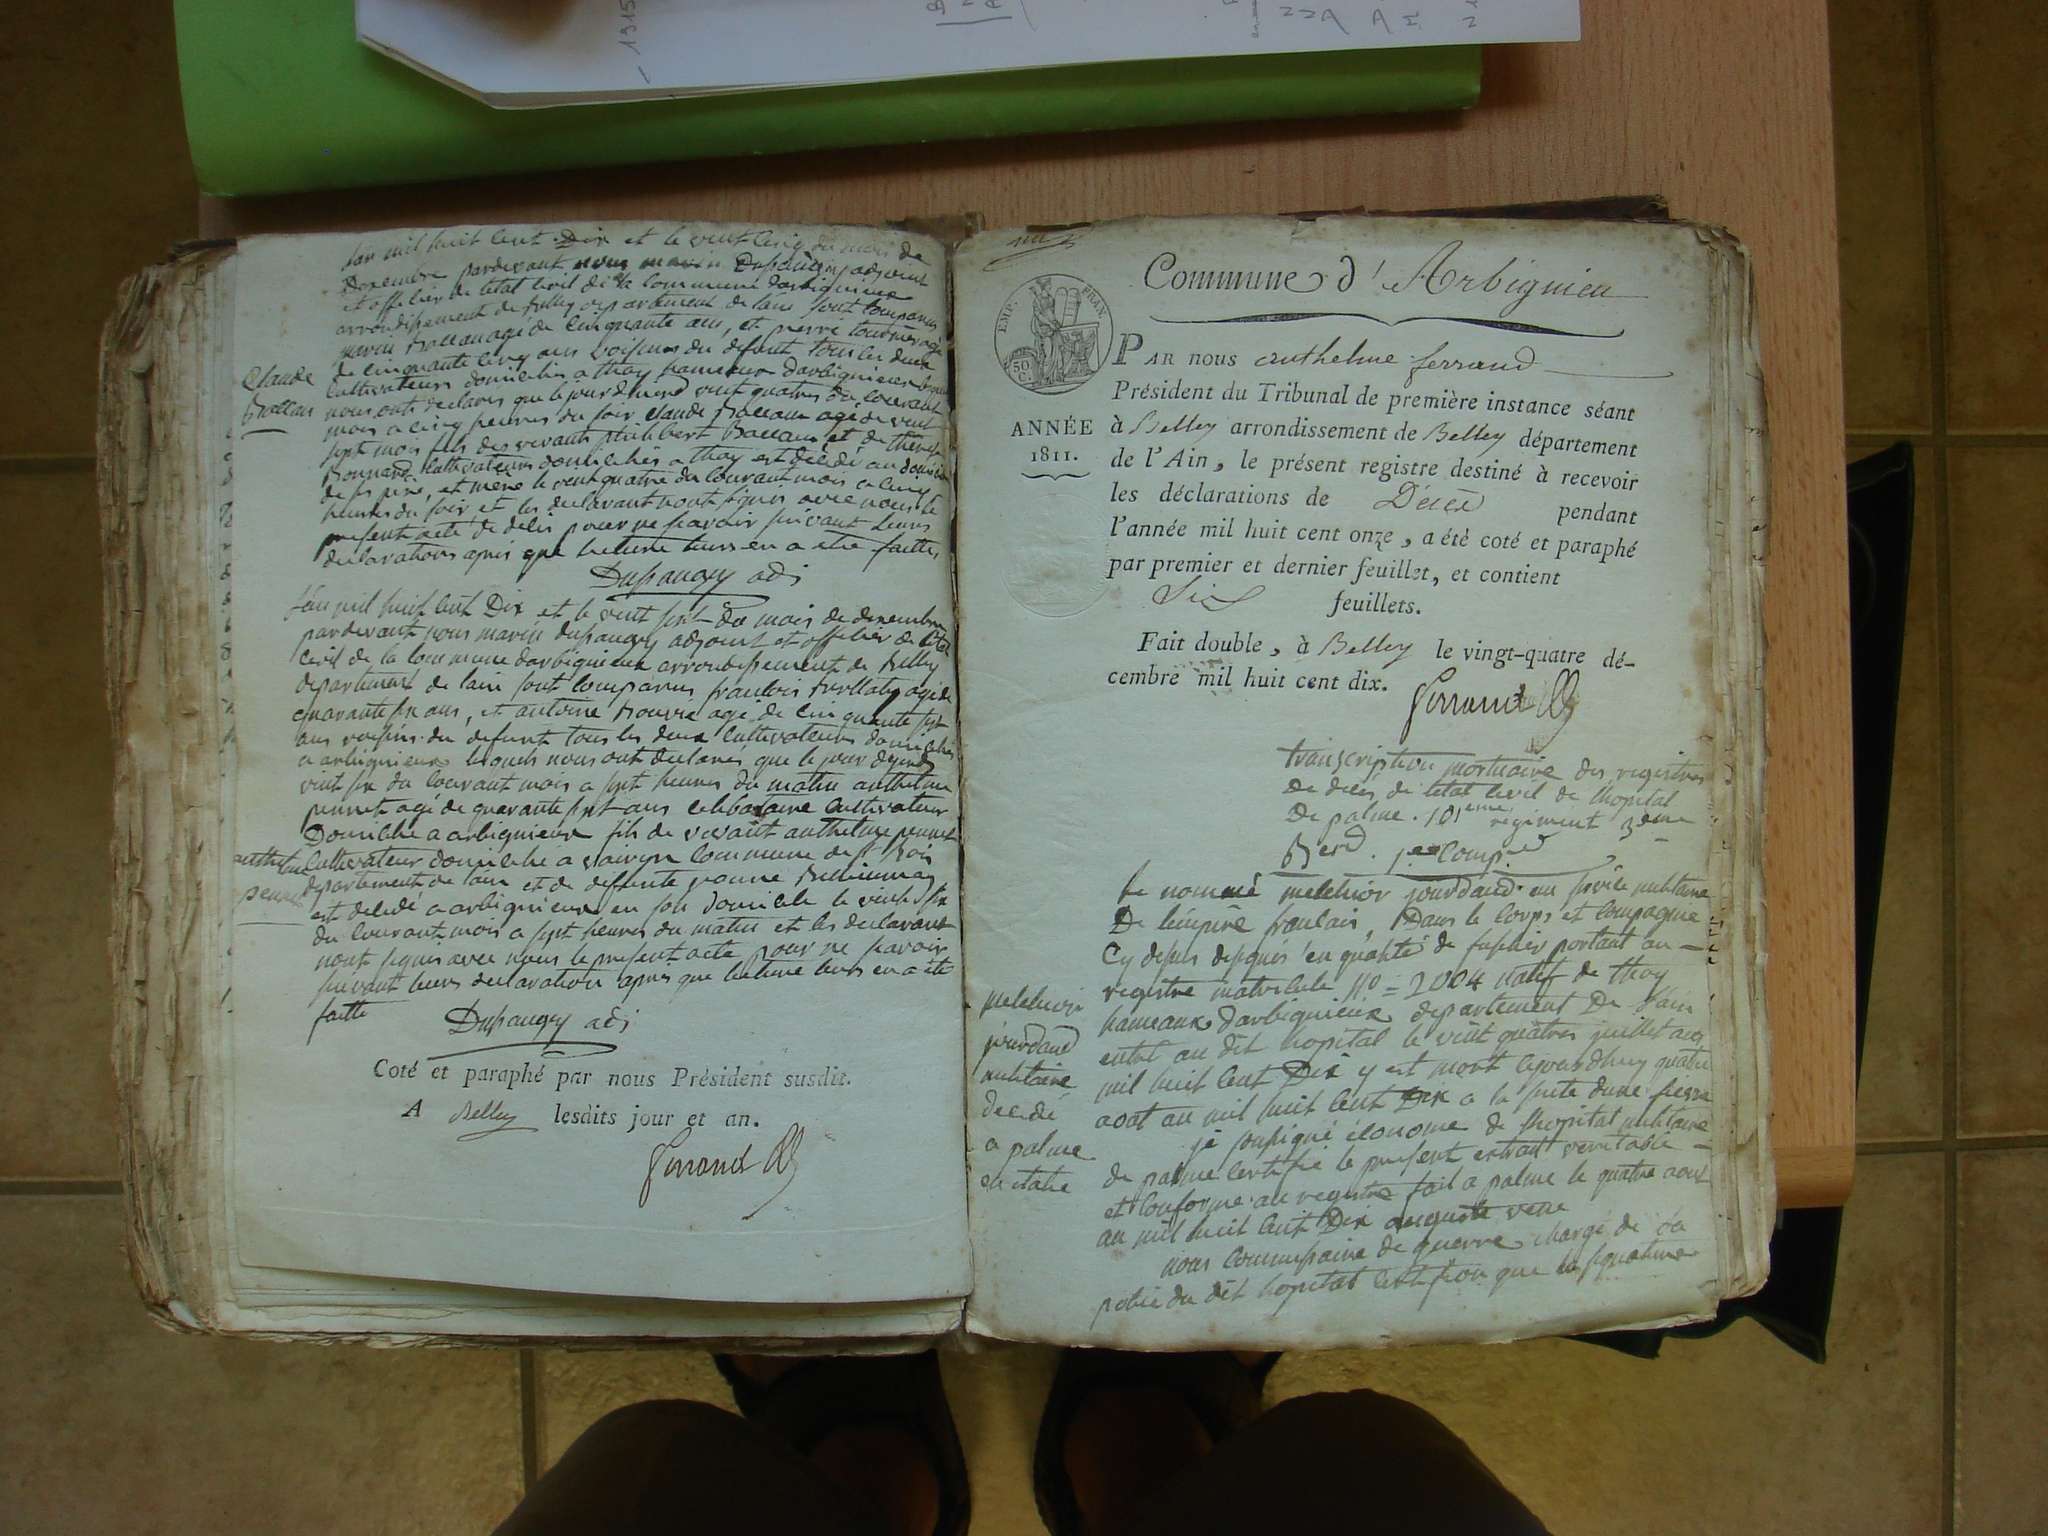 1315
lan mil huit Cent Dix et le vint Cinq du mois de
Dexembre pardevant nous marin Dupaugey adjoint
et officier de letat Civil de la Commune darbignieux
arrondissement de belley departement de lain sont Comparus
marin Ballans agé de Cinquante ans, et pierre tournier agé
de Cinquante Cinq ans voisins du defunt tous les deux
Cultivateurs domicilies a thoy hameaux darbignieux
nous ont declarés que le jour dhierd vint quatres du Courant
mois a Cinq heures du soir Claude Ballans agé de vint
sept mois fils des vivants philibert Ballans et de therese
Bonnard Cultivateurs domicilies a thoy est décédé au domicile
de ses pere, et mere le vent quatre du Courant mois a Cinq
heures du soir et les declarant nont signés avec nous le
present acte de décés pour ne savoir suivant leurs
declarations apres que lecture leurs en a eté faitte,
Claude
Ballans
Dupaugey adj
lan mil huit Cent Dix et le vent sept du mois de dexembre
pardevant nous marin dupaugey adjoint et officier de letat
Civil de la Commune darbignieux arrondissement de belley
departement de lain sont Comparus francois agé de
quarante six ans, et antoine Bouvie agé de Cinquante sept
ans voisins du defunt tous les deux Cultivateurs domicilies
a arbignieux lesquels nous ont declarés que le jour dyerd
vint six du Courant mois a sept heures du matin anthelme
pennet agé de quarante sept ans celibataire Cultivateur
Domicilie a arbignieux fils de vivant anthelme pennet
Cultivateur domicilié a Commune de st Bois
departement de lain et de defunte
est decedé a arbignieux en son domicile le vint six
du Courant mois a sept heures du matin et les declarant
nont signés avec nous le present acte pour ne savoir
suivant leurs declaration apres que lecture leurs en a eté
faitte
anthelme
pennet
Dupaugey adj
Coté et paraphé par nous Président susdit.
A Belley lesdits jour et an.
Ferrand
Commune d'Arbignieu
EMP. FRAN.
50 C.
ANNÉE
1811.
PAR NOUS anthelme ferrand
Président du Tribunal de première instance séant
à Belley arrondissement de Belley département
de l'Ain, le présent registre destiné à recevoir
les déclarations de Décès pendant
l'année mil huit cent onze, a été coté et paraphé
par premier et dernier feuillet, et contient
Six feuillets.
Fait double, à Belley le vingt-quatre dé-
cembre mil huit cent dix.
Ferrand
transcription mortuaire des registres
de décés de letat Civil de lhopital
De palme. 101eme regiment 3eme
1ere Comp.
le nommé melchior jourdand au service militaire
De lempire francais, Dans le Corps et Compagnie
Cy dessus designés en qualité de fusilier portant au
registre matricule No = 2004 natif de thoy
hameaux darbignieux departement De lain
entré au dit hopital le vint quatres juillet an
mil huit Cent Dix y est mort aujourdhuy quatre
aoat an mil huit Cent Dix a la suite dune fievre
je soussigné économe de lhopital militaire
de palme Certifie le present extrait veritable
et Conforme au registre fait a palme le quatre aout
an mil huit Cent Dix auguste
nous Commissaire de guerre Chargé de la
police du dit hopital Certifions que la signature
melchior
jourdand
militaire
decedé
a palme
en italie